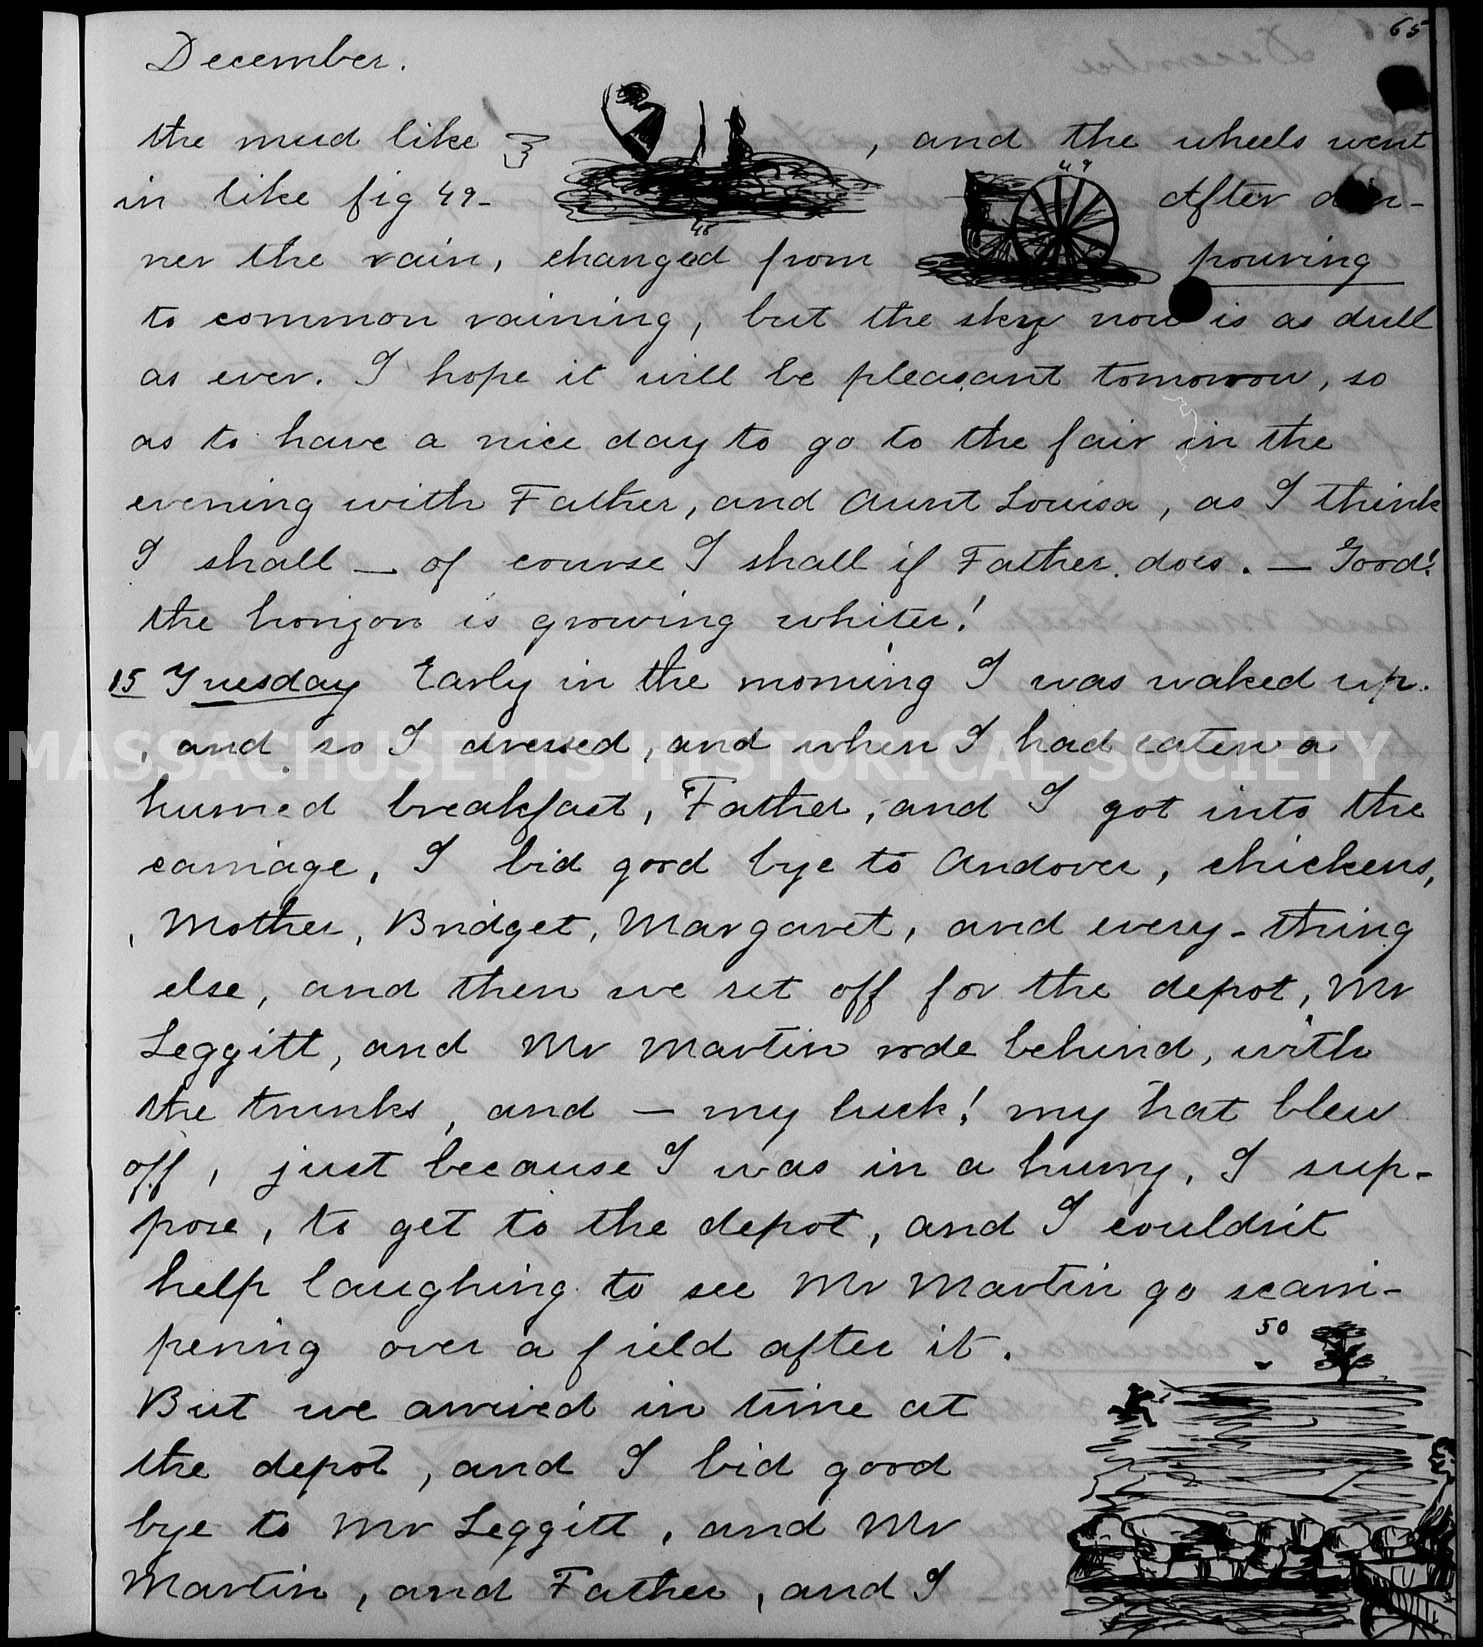 65
December.
the mud like , and the wheels went
49
in like fig 49- After din-
48
ner the rain, changed from pouring
to common raining, but the sky now is as dull
as ever. I hope it will be pleasant tomorrow, so
as to have a nice day to go to the fair in the
evening with Father, and Aunt Louisa, as I think
I shall — of course I shall if Father does. — Good!
the horizon is growing whiter!
15 Tuesday Early in the morning I was waked up.
, and so I dressed, and when I had eaten a
MASSACHUSETTS HISTORICAL SOCIETY
hurried breakfast, Father, and I got into the
carriage, I bid good bye to Andover, chickens,
, Mother, Bridget, Margaret, and every-thing
else, and then we set off for the depot, Mr
Leggitt, and Mr Martin rode behind, with
the trunks, and — my luck! my hat blew
off, just because I was in a hurry, I sup-
pose, to get to the depot, and I couldn't
help laughing to see Mr Martin go scam-
pering over a field after it.
50
But we arrived in time at
the depot, and I bid good
bye to Mr Leggitt, and Mr
Martin, and Father, and I